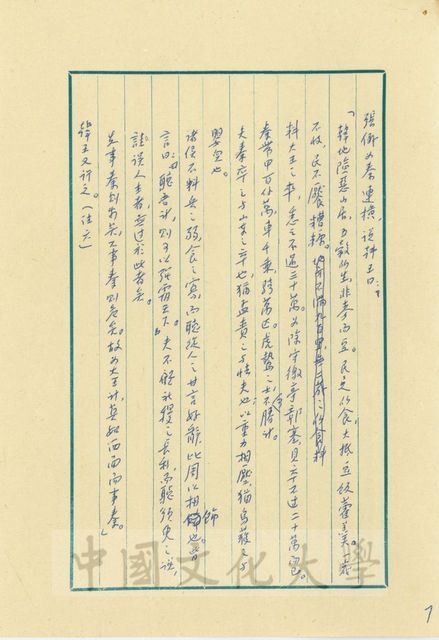 張儀為秦連橫,說韓王曰:
「韓地險惡山居,五穀所生,非麥而豆。民之所食,大抵豆飯藿羹。一歲
不收,民不饜糟糠。地方不滿九百里,無二歲之所食。料
料大王之卒,悉之不過三十萬。為除守徼亭鄣塞,見卒不過二十萬而已。
秦帶甲百餘萬,車千乘,騎萬匹,虎摯之士,不可勝計。
夫秦卒之與山東之卒也,猶孟賁之與怯夫也;以重力相壓,猶烏獲之與
嬰兒也。
諸侯不料兵之弱,食之寡,而聽從人之甘言好辭,比周以相飾也,皆
言曰:『聽吾計,則可以強霸天下。』夫不顧社稷之長利,而聽須臾之說,
詿誤人主者,無過於此者矣。
先事秦則安矣,不事秦則危矣。故為大王計,莫如西面而事秦。」
韓王又許之。(注六)
中國文化大學
7